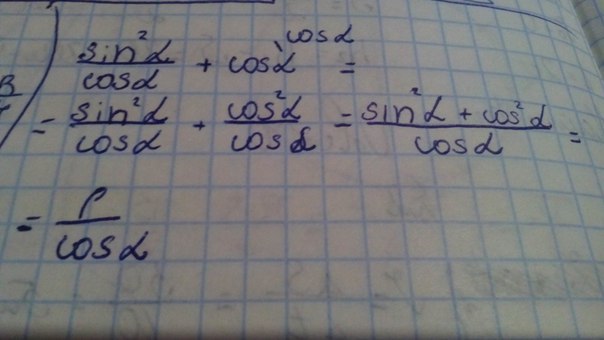 cosα
sin²α/cosα + cosα =
= sin²α/cosα + cos²α/cosα = (sin²α + cos²α)/cosα =
= 1/cosα